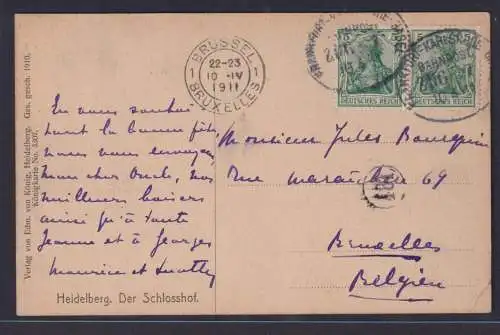 Verlag von Edm. von König, Heidelberg. Ges. gesch. 1910.
Königkarte No. 3307.
BRUSSEL
1 22-23 1
10 -IV
1911
BRUXELLES
DEUTSCHES REICH DEUTSCHES REICH
En vous souhai
tant la bonne fête
nous vous envoyons
mon cher Oncle, nos
meilleurs baisers
ainsi qu'à tante
Jeanne et à Georges
Maurice et
Monsieur Jules
rue 69
Bruxelles
Belgien
Heidelberg. Der Schlosshof.